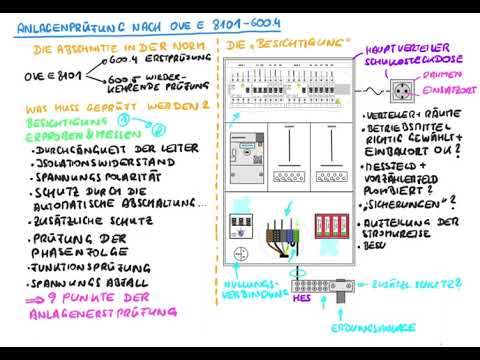 ANLAGENPRÜFUNG NACH OVE E 8101-600.4
DIE ABSCHNITTE IN DER NORM
OVE E8101
600.4 ERSTPRÜFUNG
600.5 WIEDER-
KEHRENDE PRÜFUNG
WAS MUSS GEPRÜFT WERDEN?
BESICHTIGUNG 1
ERPROBEN & MESSEN 2
• DURCHGÄNGIGKEIT DER LEITER
• ISOLATIONSWIDERSTAND
• SPANNUNGSPOLARITÄT
• SCHUTZ DURCH DIE
AUTOMATISCHE ABSCHALTUNG...
• ZUSÄTZLICHE SCHUTZ
• PRÜFUNG DER
PHASENFOLGE
• FUNKTIONSPRÜFUNG
• SPANNUNGSABFALL
→ 9 PUNKTE DER
ANLAGENERSTPRÜFUNG
DIE "BESICHTIGUNG"
NULLUNGS-
VERBINDUNG
HES
HAUPTVERTEILER
SCHUKOSTECKDOSE
RAHMEN
EINSATZORT
• VERTEILER + RÄUME
• BETRIEBSMITTEL
RICHTIG GEWÄHLT +
EINBAUORT OK?
• MESSFELD +
VORZÄHLERFELD
PLOMBIERT?
• "SICHERUNGEN"?
• AUFTEILUNG DER
STROMKREISE
• BESC
ZUSÄTZL. SCHUTZ?
ERDUNGSANLAGE